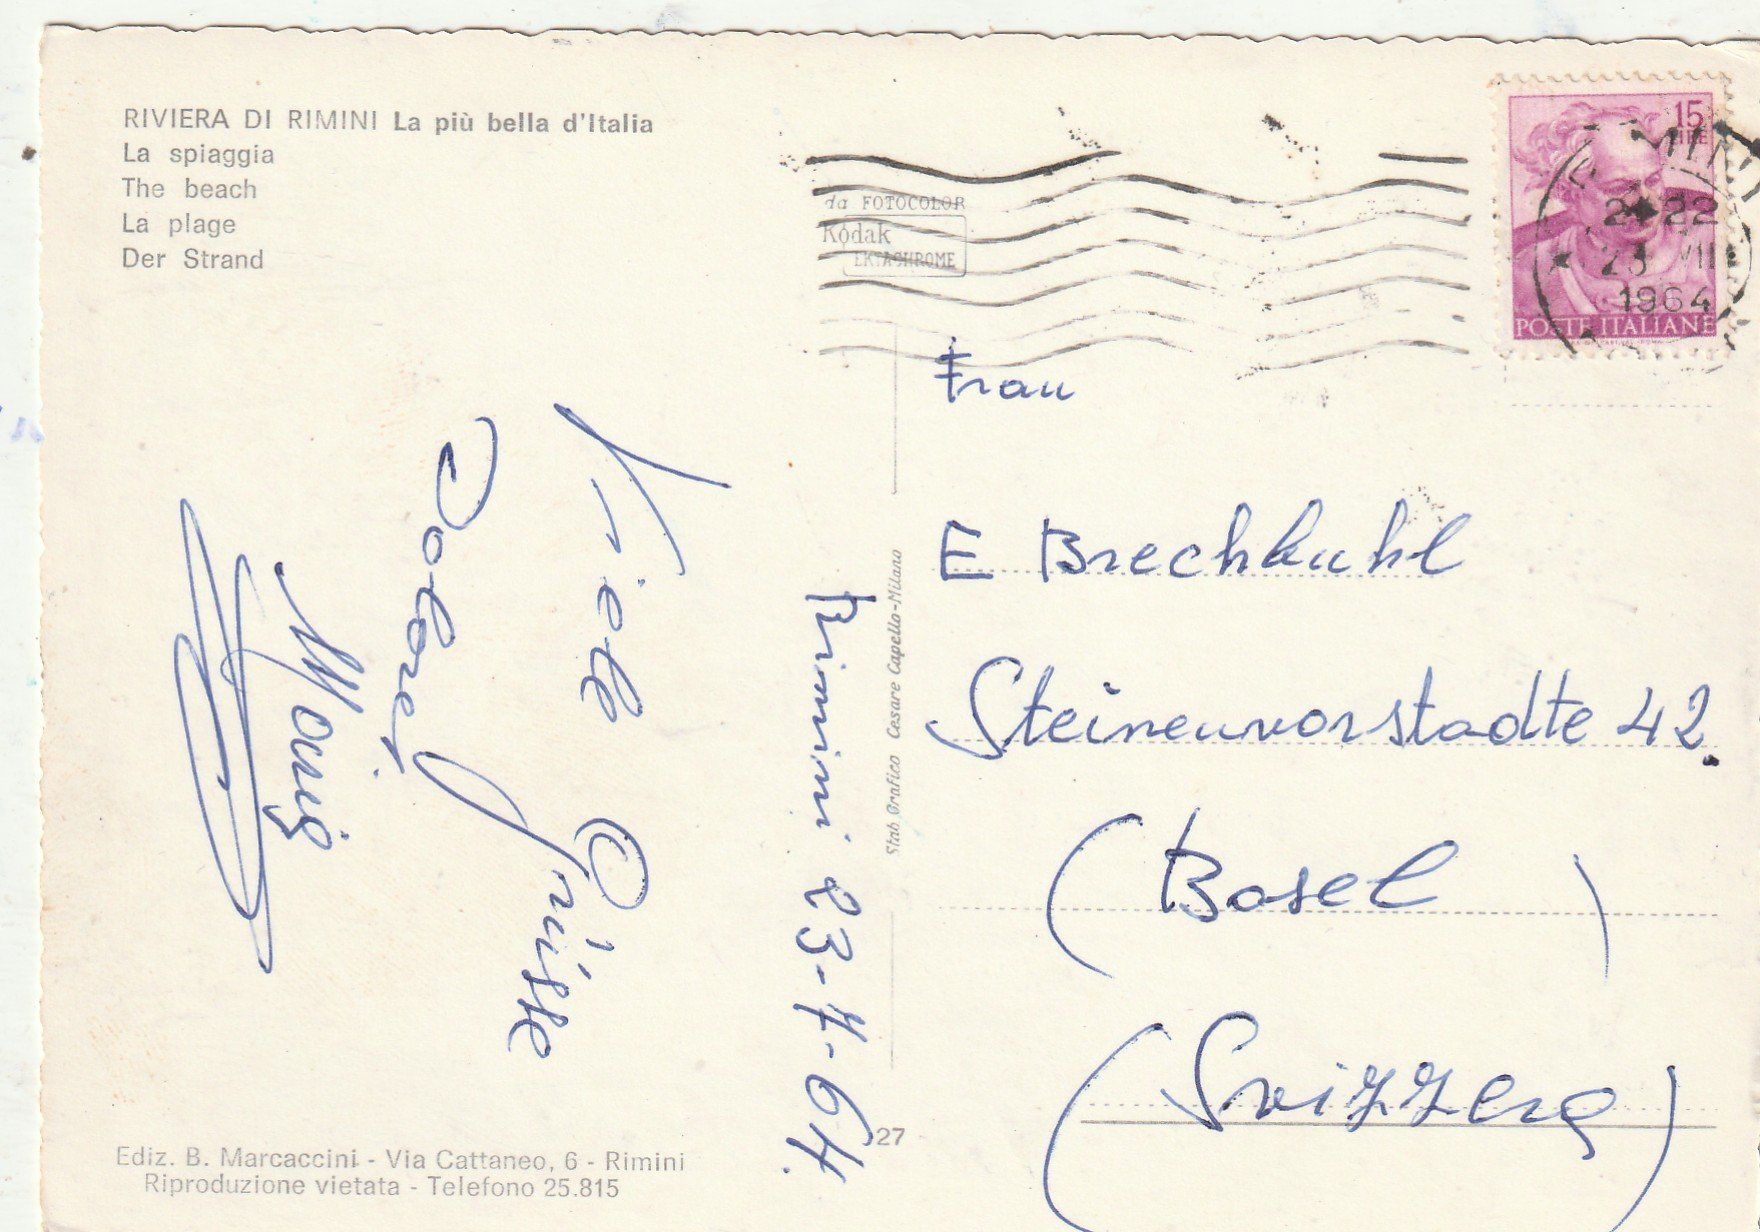 RIVIERA DI RIMINI La più bella d'Italia
La spiaggia
The beach
La plage
Der Strand
da FOTOCOLOR
Kodak
EKTACHROME
15
LIRE
POSTE ITALIANE
21-22
23 VII
1964
Rimini 23-7-64.
Viele Grüsse
Dolores
Stab. Grafico Cesare Capello-Milano
Frau
E Brechbuhl
Steinenvorstadte 42.
(Basel)
(Svizzera)
27
Ediz. B. Marcaccini - Via Cattaneo, 6 - Rimini
Riproduzione vietata - Telefono 25.815